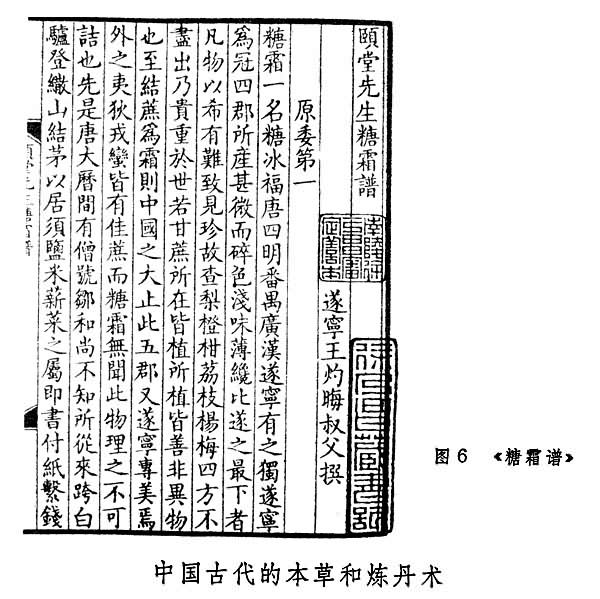 頤堂先生糖霜譜
遂寧王灼晦叔父撰
原委第一
糖霜一名糖氷福唐四明番禺廣漢遂寧有之獨遂寧
爲冠四郡所産甚微而碎色淺味薄纔比遂之最下者
凡物以希有難致見珍故查梨橙柑荔枝楊梅四方不
盡出乃貴重於世若甘蔗所在皆植所植皆善非異物
也至結蔗爲霜則中國之大止此五郡又遂寧專美焉
外之夷狄戎蠻皆有佳蔗而糖霜無聞此物理之不可
詰也先是唐大曆間有僧號鄒和尚不知所從來跨白
驢登繖山結茅以居須鹽米薪菜之屬即書付紙繫錢
图6 《糖霜谱》
中国古代的本草和炼丹术